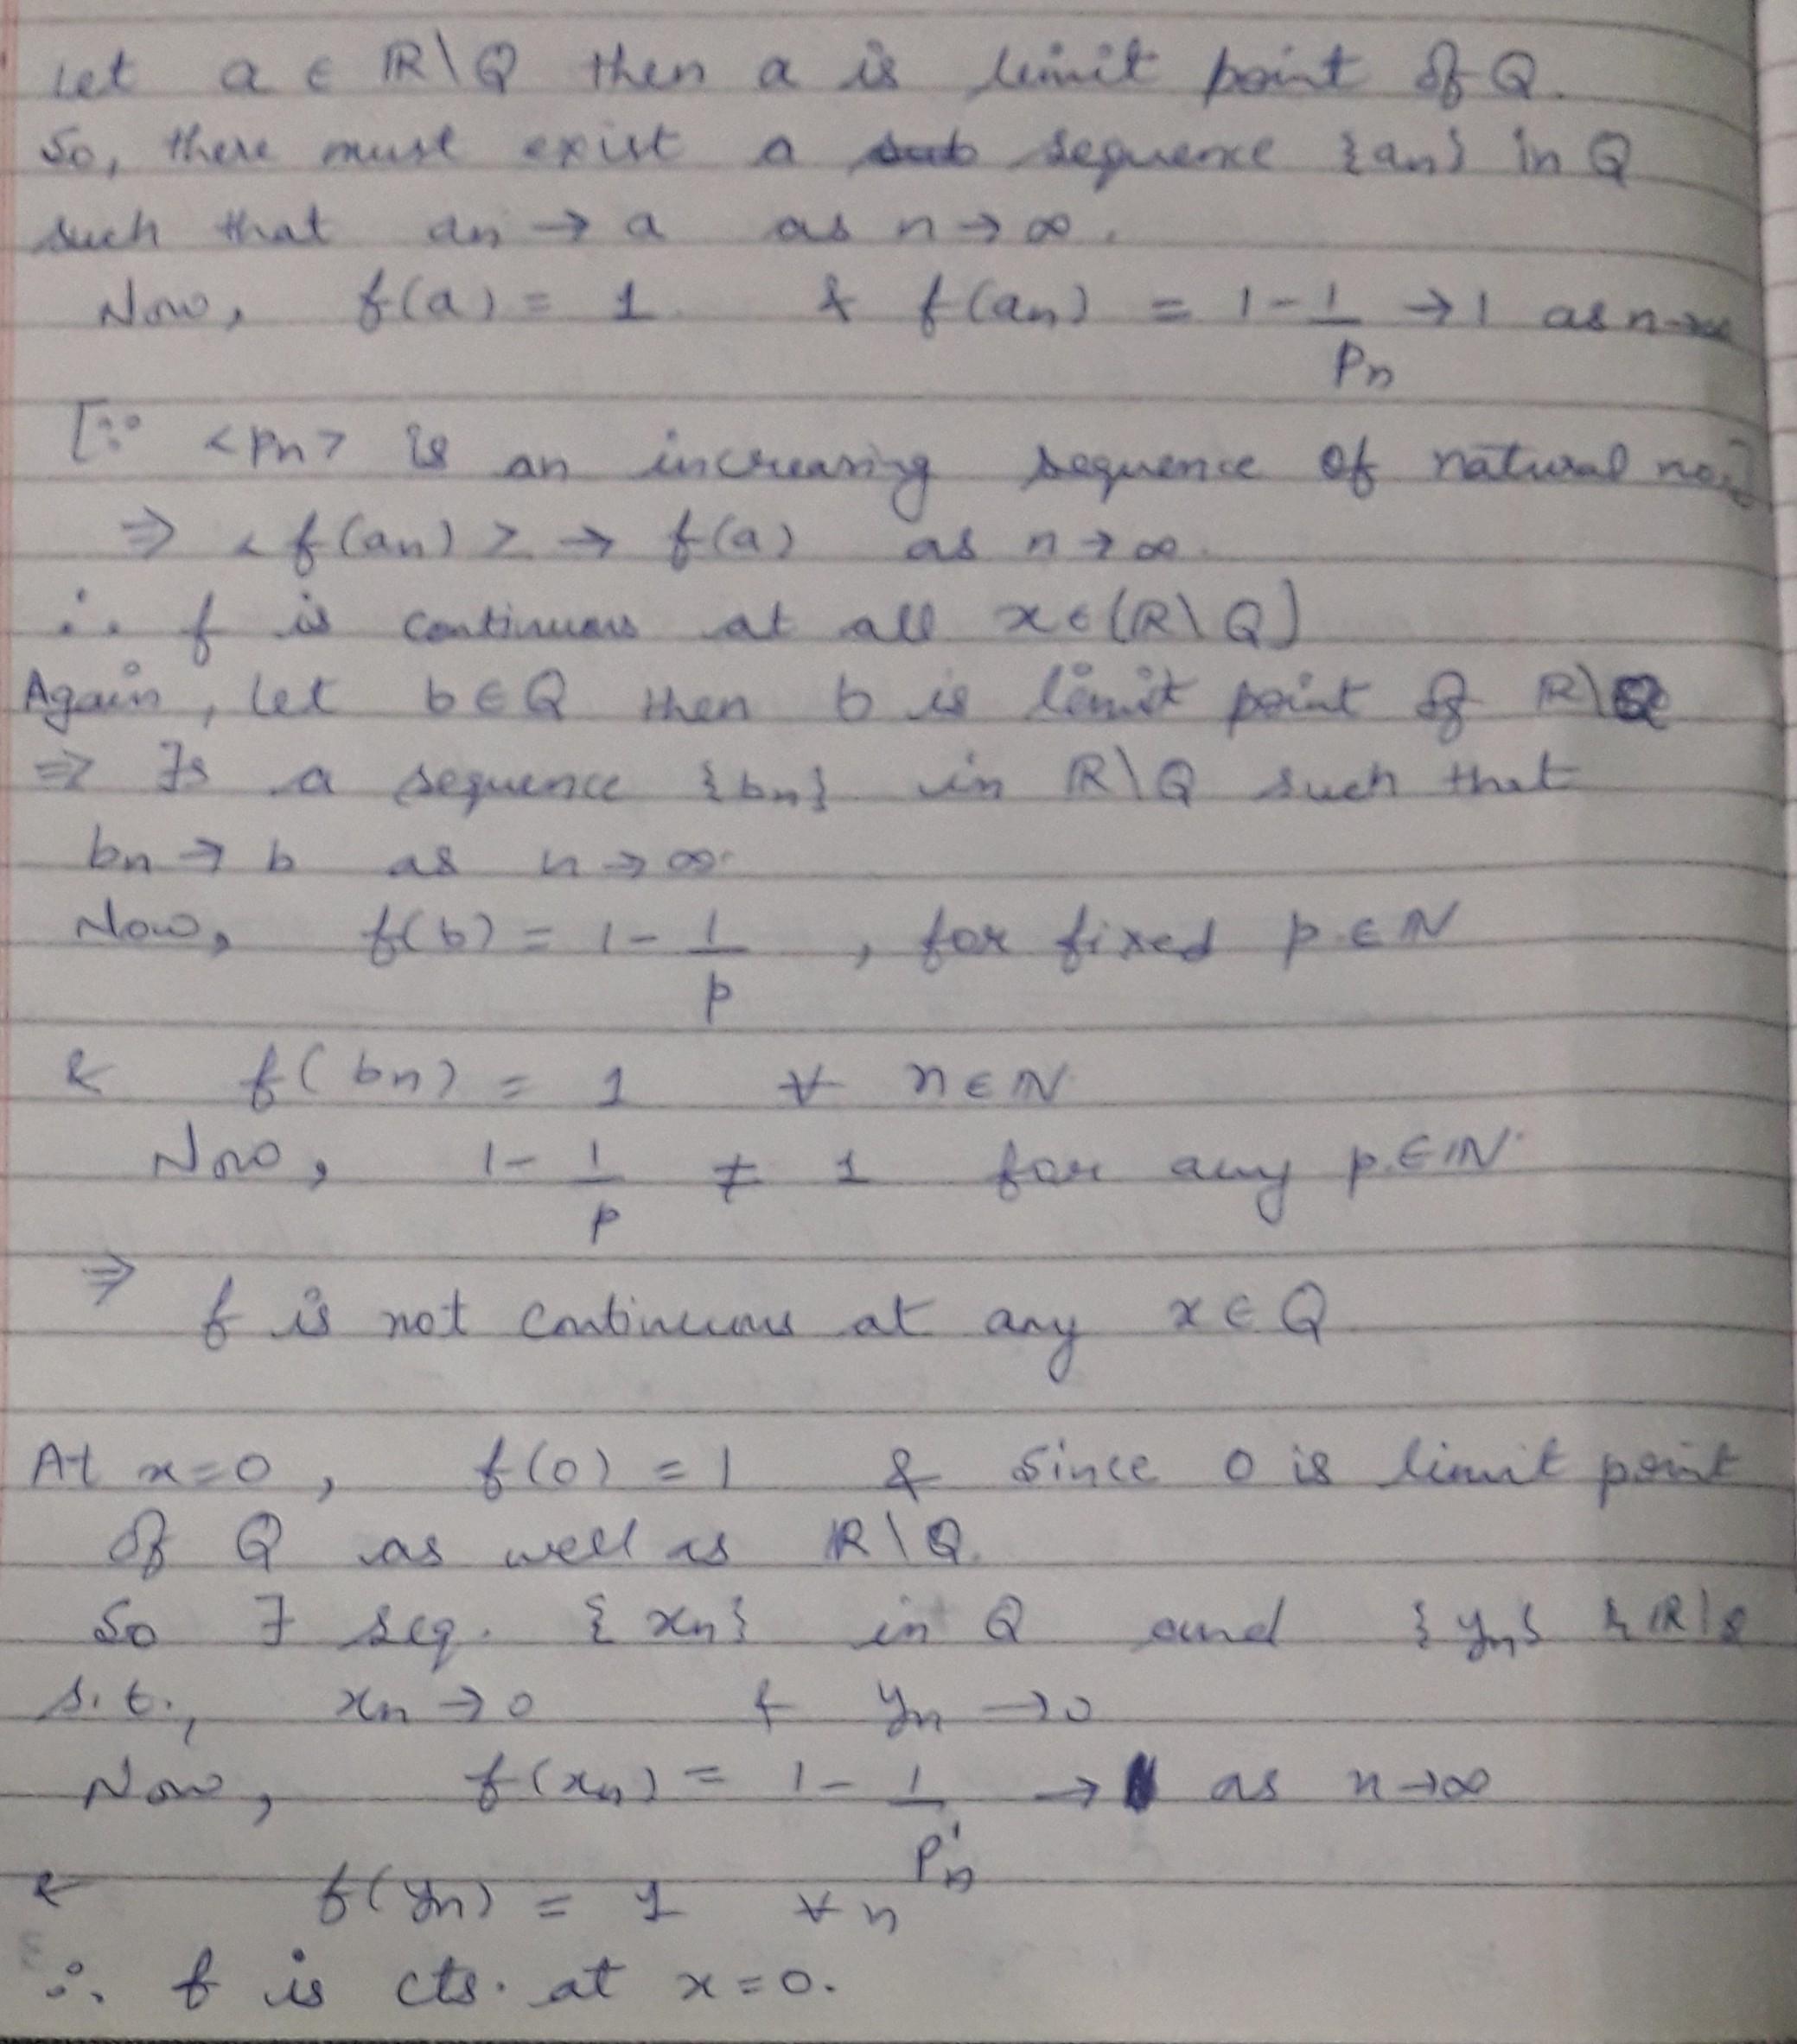 Let a ∈ ℝ\Q then a is limit point of Q.
So, there must exist a sequence {an} in Q
such that an → a as n → ∞.
Now, f(a) = 1 & f(an) = 1 - 1/Pn → 1 as n→∞
[∵ <Pn> is an increasing sequence of natural no.]
⇒ <f(an)> → f(a) as n → ∞.
∴ f is continuous at all x ∈ (ℝ\Q)
Again, let b ∈ Q then b is limit point of ℝ\Q
⇒ ∃s a sequence {bn} in ℝ\Q such that
bn → b as n → ∞.
Now, f(b) = 1 - 1/p , for fixed p ∈ ℕ
& f(bn) = 1 ∀ n ∈ ℕ
Now, 1 - 1/p ≠ 1 for any p ∈ ℕ.
⇒ f is not continuous at any x ∈ Q
At x=0, f(0) = 1 & since 0 is limit point
of Q as well as ℝ\Q.
So ∃ seq. {xn} in Q and {yn} ℝ\Q
s.t., xn → 0 & yn → 0
Now, f(xn) = 1 - 1/P'n → 1 as n→∞
& f(yn) = 1 ∀ n
∴ f is cts. at x=0.